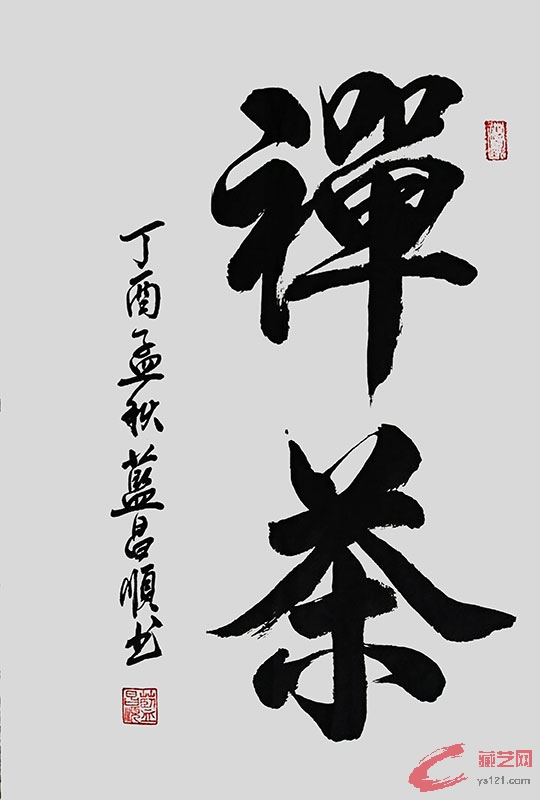 禪茶
丁酉孟秋藍昌順书
藏艺网
ys121.com